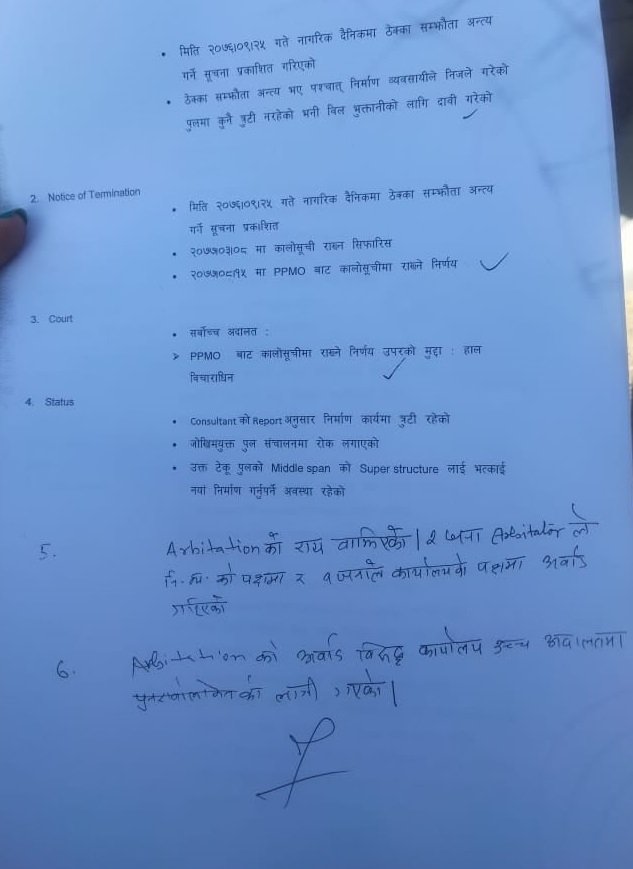 • मिति २०७६।०९।२५ गते नागरिक दैनिकमा ठेक्का सम्झौता अन्त्य
गर्ने सूचना प्रकाशित गरिएको
• ठेक्का सम्झौता अन्त्य भए पश्चात् निर्माण व्यवसायीले निजले गरेको
पुलमा कुनै त्रुटी नरहेको भनी बिल भुक्तानीको लागि दावी गरेको
2. Notice of Termination
• मिति २०७६।०९।२५ गते नागरिक दैनिकमा ठेक्का सम्झौता अन्त्य
गर्ने सूचना प्रकाशित
• २०७७।०३।०८ मा कालोसूची राख्न सिफारिस
• २०७७।०८।१५ मा PPMO बाट कालोसूचीमा राख्ने निर्णय
3. Court
• सर्वोच्च अदालत :
➢ PPMO बाट कालोसूचीमा राख्ने निर्णय उपरको मुद्दा : हाल
विचाराधिन
4. Status
• Consultant को Report अनुसार निर्माण कार्यमा त्रुटी रहेको
• जोखिमयुक्त पुल संचालनमा रोक लगाएको
• उक्त टेकू पुलको Middle span को Super structure लाई भत्काई
नयां निर्माण गर्नुपर्ने अवस्था रहेको
5. Arbitation को राय २ जना Arbitator ले
नि.व्य. को पक्षमा र १ जनाले कार्यालयको पक्षमा अवार्ड
गरिएको
6. Arbitation को अवार्ड विरुद्ध कार्यालय उच्च अदालतमा
पुनरावलोकनको लागी गएको |